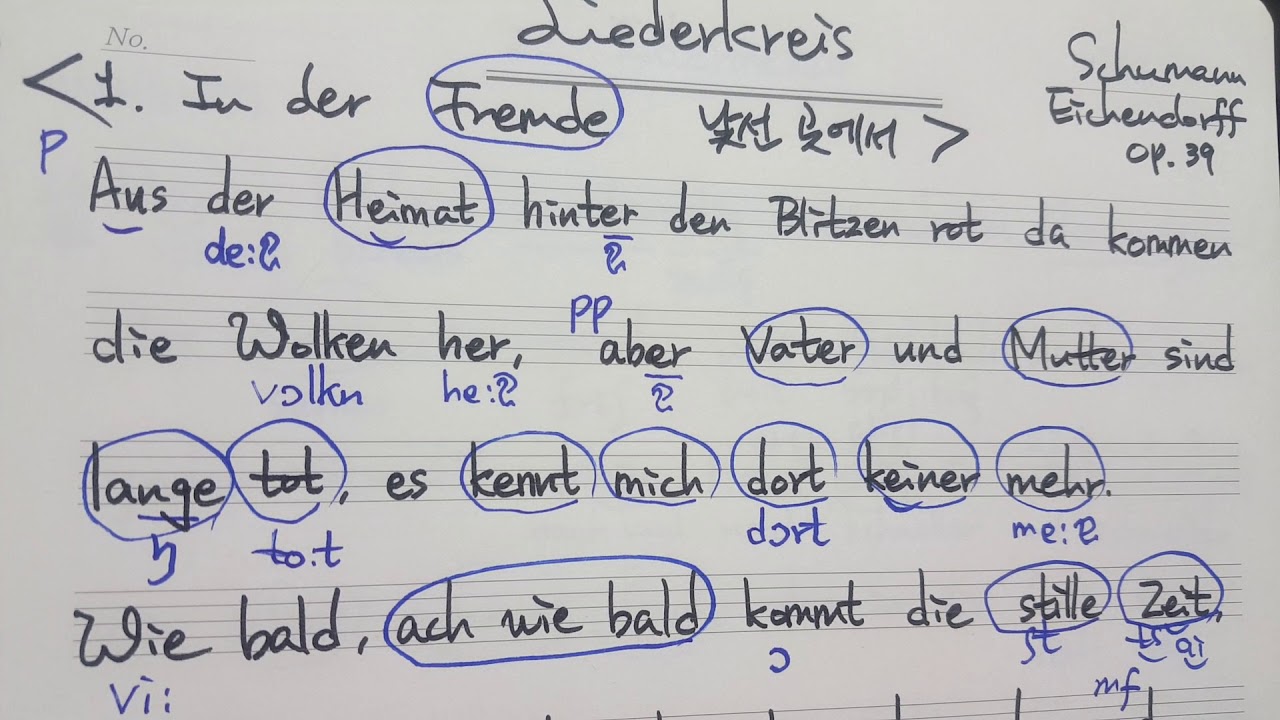 Liederkreis
No.
<1. In der Fremde 낯선 곳에서>
Schumann
Eichendorff
op. 39
p
Aus der Heimat hinter den Blitzen rot da kommen
de:ɐ ɐ
pp
die Wolken her, aber Vater und Mutter sind
vɔlkn he:ɐ ɐ
lange tot, es kennt mich dort keiner mehr.
ŋ to:t dɔrt me:ɐ
Wie bald, ach wie bald kommt die stille Zeit,
vi: ɔ ʃt ts ai
mf